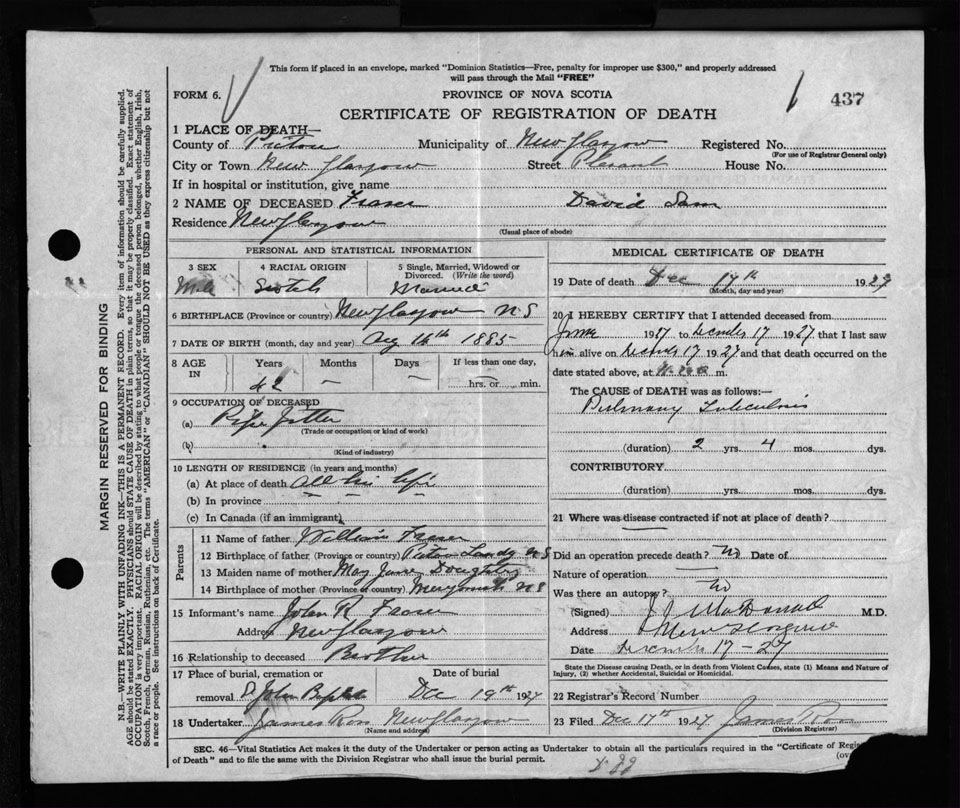 This form if placed in an envelope, marked "Dominion Statistics—Free, penalty for improper use $300," and properly addressed
will pass through the Mail "FREE"
FORM 6.
PROVINCE OF NOVA SCOTIA
437
CERTIFICATE OF REGISTRATION OF DEATH
1 PLACE OF DEATH—
County of Pictou Municipality of New Glasgow Registered No.
(For use of Registrar General only)
City or Town New Glasgow Street Plesant House No.
If in hospital or institution, give name
2 NAME OF DECEASED Fraser David
Residence New Glasgow
(Usual place of abode)
PERSONAL AND STATISTICAL INFORMATION
3 SEX 4 RACIAL ORIGIN 5 Single, Married, Widowed or
Divorced. (Write the word)
Male Scotch Married
6 BIRTHPLACE (Province or country) New Glasgow N S
7 DATE OF BIRTH (month, day and year) Aug 16th 1885
8 AGE IN Years Months Days If less than one day,
42 — — hrs. or min.
9 OCCUPATION OF DECEASED
(a) Pipe Fitter
(Trade or occupation or kind of work)
(b)
(Kind of industry)
10 LENGTH OF RESIDENCE (in years and months)
(a) At place of death All his life
(b) In province
(c) In Canada (if an immigrant)
Parents
11 Name of father William Fraser
12 Birthplace of father (Province or country) Pictou Landg N S
13 Maiden name of mother May Jane
14 Birthplace of mother (Province or country) N S
15 Informant's name John R Fraser
Address New Glasgow
16 Relationship to deceased Brother
17 Place of burial, cremation or Date of burial
removal St John Dec 19th 1927
18 Undertaker James Ross New Glasgow
(Name and address)
MEDICAL CERTIFICATE OF DEATH
19 Date of death Dec 17th 1927
(Month, day and year)
20 I HEREBY CERTIFY that I attended deceased from
June 1927 to December 17 1927 that I last saw
him alive on December 17 1927 and that death occurred on the
date stated above, at m.
The CAUSE OF DEATH was as follows:—
Pulmonary Tuberculosis
(duration) 2 yrs. 4 mos. dys.
CONTRIBUTORY
(duration) yrs. mos. dys.
21 Where was disease contracted if not at place of death?
Did an operation precede death? No Date of
Nature of operation
Was there an autopsy? No
(Signed) McDonald M.D.
Address New Glasgow
Date December 17-27
State the Disease causing Death, or in death from Violent Causes, state (1) Means and Nature of
Injury, (2) whether Accidental, Suicidal or Homicidal.
22 Registrar's Record Number
23 Filed Dec 17th 1927 James Ross
(Division Registrar)
SEC. 46—Vital Statistics Act makes it the duty of the Undertaker or person acting as Undertaker to obtain all the particulars required in the "Certificate of Regis
of Death" and to file the same with the Division Registrar who shall issue the burial permit. (ove
MARGIN RESERVED FOR BINDING
N.B.—WRITE PLAINLY WITH UNFADING INK—THIS IS A PERMANENT RECORD. Every item of information should be carefully supplied.
AGE should be stated EXACTLY. PHYSICIANS should STATE CAUSE OF DEATH in plain terms, so that it may be properly classified. Exact statement of
OCCUPATION is very important. RACIAL ORIGIN will be described by stating to what people or tongue the deceased person belonged, whether English, Irish,
Scotch, French, German, Russian, Ruthenian, etc. The terms "AMERICAN" or "CANADIAN" SHOULD NOT BE USED as they express citizenship but not
a race or people. See instructions on back of Certificate.